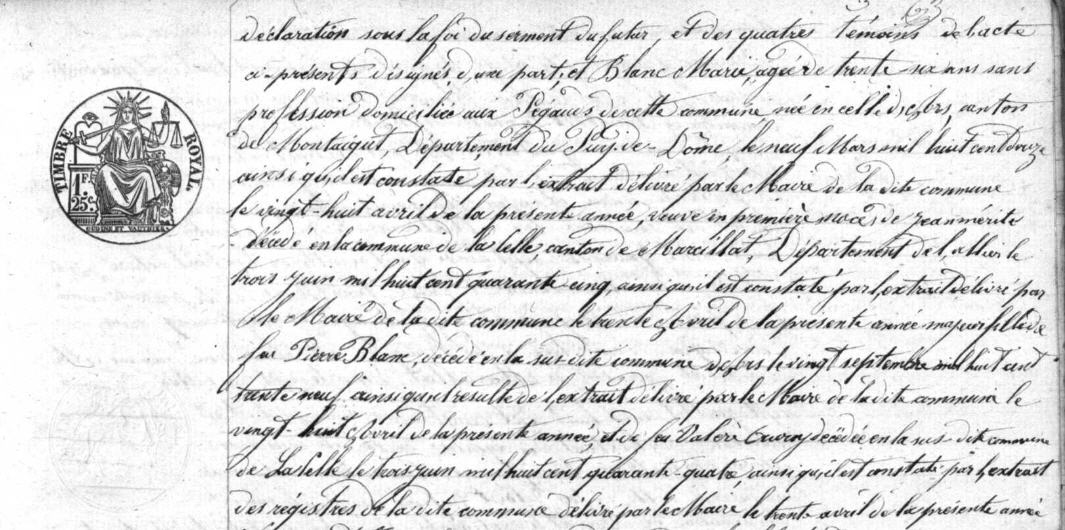 déclaration sous la foi du serment du futur, et des quatres témoins de l'acte
ci-présents désignés, d'une part, et Blanc Marie, agée de trente-six ans sans
profession domiciliée aux Pigauds de cette commune, née en celle d'ars, canton
de Montaigut, Département du Puy-de-Dôme, le neuf Mars mil huit cent douze
ainsi qu'il est constaté par l'extrait délivré par le Maire de la dite commune
le vingt-huit avril de la présente année, veuve en première noces de jean mérite
décédé en la commune de la Celle canton de Marcillat, Département de l'allier le
trois juin mil huit cent quarante cinq, ainsi qu'il est constaté par l'extrait délivré par
le Maire de la dite commune le trente Avril de la présente année majeur fille de
feu Pierre Blanc, décédé en la sus-dite commune d'ars le vingt septembre mil huit cent
trente neuf, ainsi qu'il résulte de l'extrait délivré par le Maire de la dite commune le
vingt-huit Avril de la présente année, et de feu Valérè décédée en la sus-dite commune
de La Celle le trois juin mil huit cent quarante-quatre, ainsi qu'il est constaté par l'extrait
des régistres de la dite commune délivré par le Maire le trente avril de la présente année
TIMBRE ROYAL
1F.
25c.